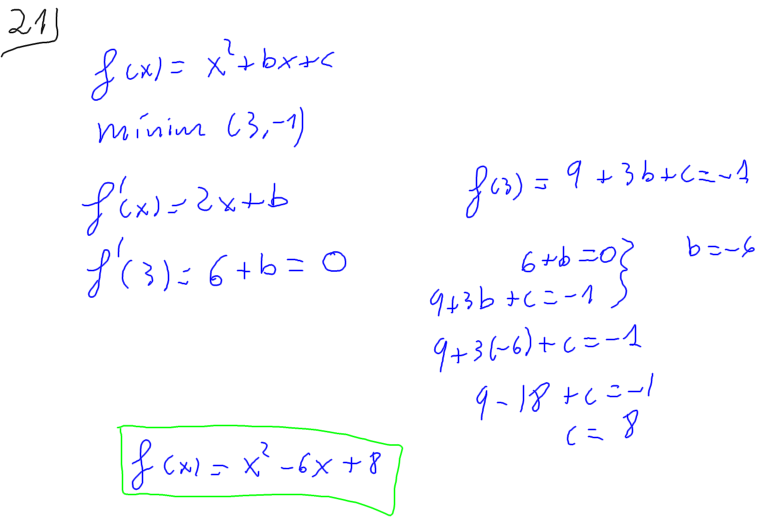 21)
f(x) = x²+bx+c
mínim (3,-1)
f'(x) = 2x+b
f'(3) = 6+b = 0
f(3) = 9 + 3b+c = -1
6+b = 0 } b = -6
9+3b+c = -1
9+3(-6)+c = -1
9-18+c = -1
c = 8
f(x) = x²-6x+8